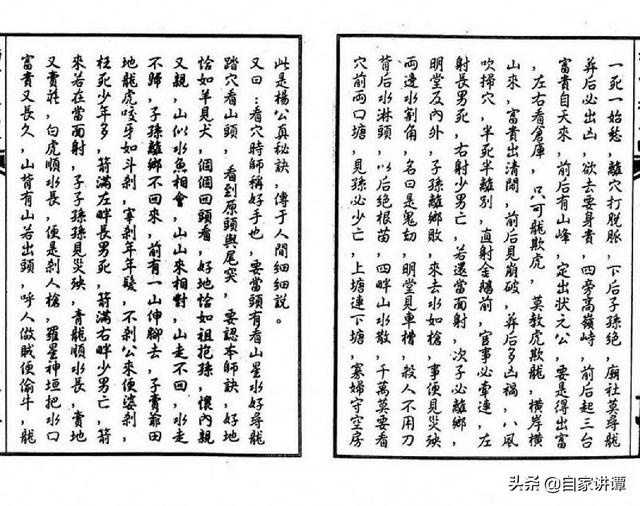 一死一始愁，離穴打脱脈，下后子孫絶，廟社莫尋龍
葬后必出凶，欲去要身貴，四旁高嶺峙，前后起三台
富貴自天來，前后有山峰，定出狀元公，要是得出富
，左右看倉庫，只可龍欺虎，莫教虎欺龍，橫岸橫
山來，富貴出清閑，前后見崩破，葬后多凶禍，八風
吹掃穴，半死半離别，直射金鵝前，官事必牽連，左
射長男死，右射少男亡，若還當面射，次子必離鄉，
明堂及内外，子孫離鄉敗，來去水如槍，事便見災殃
兩邊水割角，名曰是鬼劫，明堂見車槽，殺人不用刀
背后水淋頭，以后絶根苗，四畔山水散，千萬莫要看
穴前兩口塘，見孫必少亡，上塘連下塘，寡婦守空房
此是楊公真秘訣，傳于人間細細説。
又曰：看穴時師稱好手也，要當頭有看山星水好尋龍
踏穴看山頭，看到原頭與尾突，要認本師訣，好地
恰如羊見犬，個個回頭看，好地恰如祖抱孫，懷内親
又親，山似水魚相會，山山來相對，山走不回，水走
不歸，子孫離鄉不回來，前有一山伸腳去，子賣爺田
地龍虎咬牙如斗剎，寧剎年年髮，不剎公來便婆剎，
枉死少年多，箭滿左畔長男死，箭滿右畔少男亡，箭
來若在當面射，子子孫孫見災殃，青龍順水長，賣地
又賣莊，白虎順水長，便是剎人槍，羅星神垣把水口
富貴又長久，山背有山若出頭，呼人做賊便偷牛，龍
头条 @自家讲谭